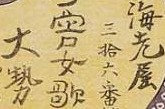 海老屋
三拾六番
雲女歌
大勢